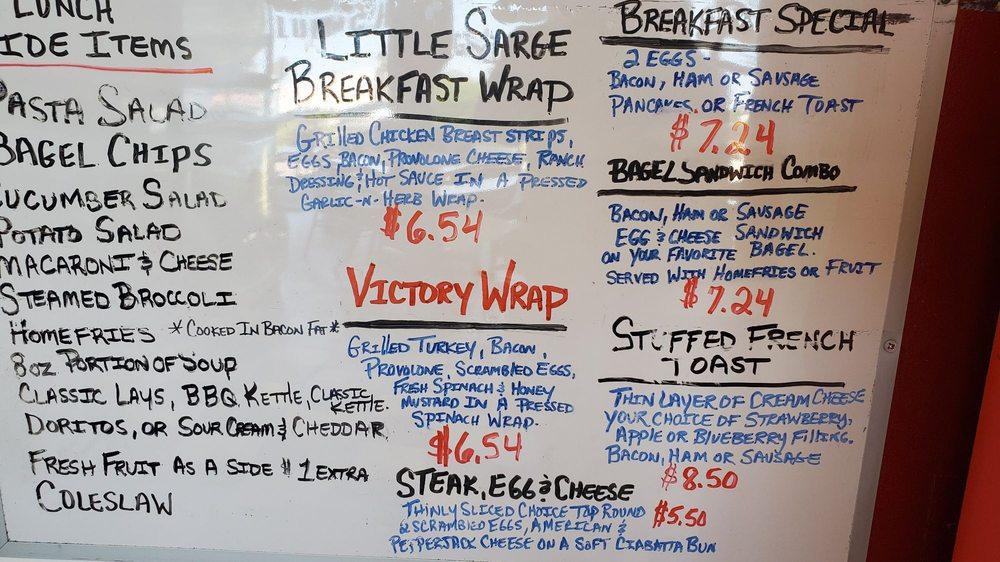 LUNCH
IDE ITEMS
PASTA SALAD
BAGEL CHIPS
CUCUMBER SALAD
POTATO SALAD
MACARONI & CHEESE
STEAMED BROCCOLI
HOMEFRIES *COOKED IN BACON FAT*
8oz PORTION OF SOUP
CLASSIC LAYS, BBQ KETTLE, CLASSIC KETTLE.
DORITOS, OR SOUR CREAM & CHEDDAR
FRESH FRUIT AS A SIDE $1 EXTRA
COLESLAW
LITTLE SARGE
BREAKFAST WRAP
GRILLED CHICKEN BREAST STRIPS,
EGGS, BACON, PROVOLONE CHEESE, RANCH
DRESSING & HOT SAUCE IN A PRESSED
GARLIC-N-HERB WRAP.
$6.54
VICTORY WRAP
GRILLED TURKEY, BACON,
PROVOLONE, SCRAMBLED EGGS,
FRESH SPINACH & HONEY
MUSTARD IN A PRESSED
SPINACH WRAP.
$6.54
STEAK, EGG & CHEESE
THINLY SLICED CHOICE TOP ROUND
2 SCRAMBLED EGGS, AMERICAN &
PEPPERJACK CHEESE ON A SOFT CIABATTA BUN
$5.50
BREAKFAST SPECIAL
2 EGGS -
BACON, HAM OR SAUSAGE
PANCAKES OR FRENCH TOAST
$7.24
BAGEL SANDWICH COMBO
BACON, HAM OR SAUSAGE
EGG & CHEESE SANDWICH
ON YOUR FAVORITE BAGEL.
SERVED WITH HOMEFRIES OR FRUIT
$7.24
STUFFED FRENCH
TOAST
THIN LAYER OF CREAM CHEESE
YOUR CHOICE OF STRAWBERRY,
APPLE OR BLUEBERRY FILLING.
BACON, HAM OR SAUSAGE
$8.50